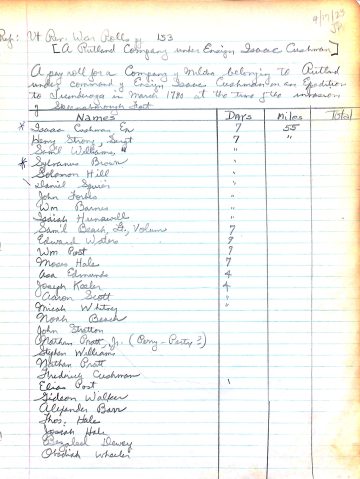 9/17/23
Ref: Vt Rev. War Rolls pg 153
[A Rutland Company under Ensign Isaac Cushman]
A pay roll for a Company of Militia belonging to Rutland
under command of Ensign Isaac Cushman on an Expedition
to Ticonderoga in March 1780 at the time of the invasion
of Skeensborough Fort
Names Days Miles Total
* Isaac Cushman En 7 55
Henry Strong, Sergt 7 "
Sam'l Williams, " "
* Sylvanus Brown "
Solomon Hill "
Daniel Squier "
John Forbs "
Wm Barnes "
Isaiah Hunewell "
Sam'l Beach, Volun 7
Edward Waters 7
Wm Post 7
Moses Hale 7
Asa Edmunds 4
Joseph Keeler 4
Aaron Scott "
Micah Whitney "
Noah Beach
John Stratton
Nathan Pratt, Jr. (Pony-Party?)
Stephen Williams
Nathan Pratt
Fredrick Cushman
Elias Post
Gideon Walker
Alexander Barr
Thos. Hale
Josiah Hale
Bezaleel Dewey
Obediah Wheeler